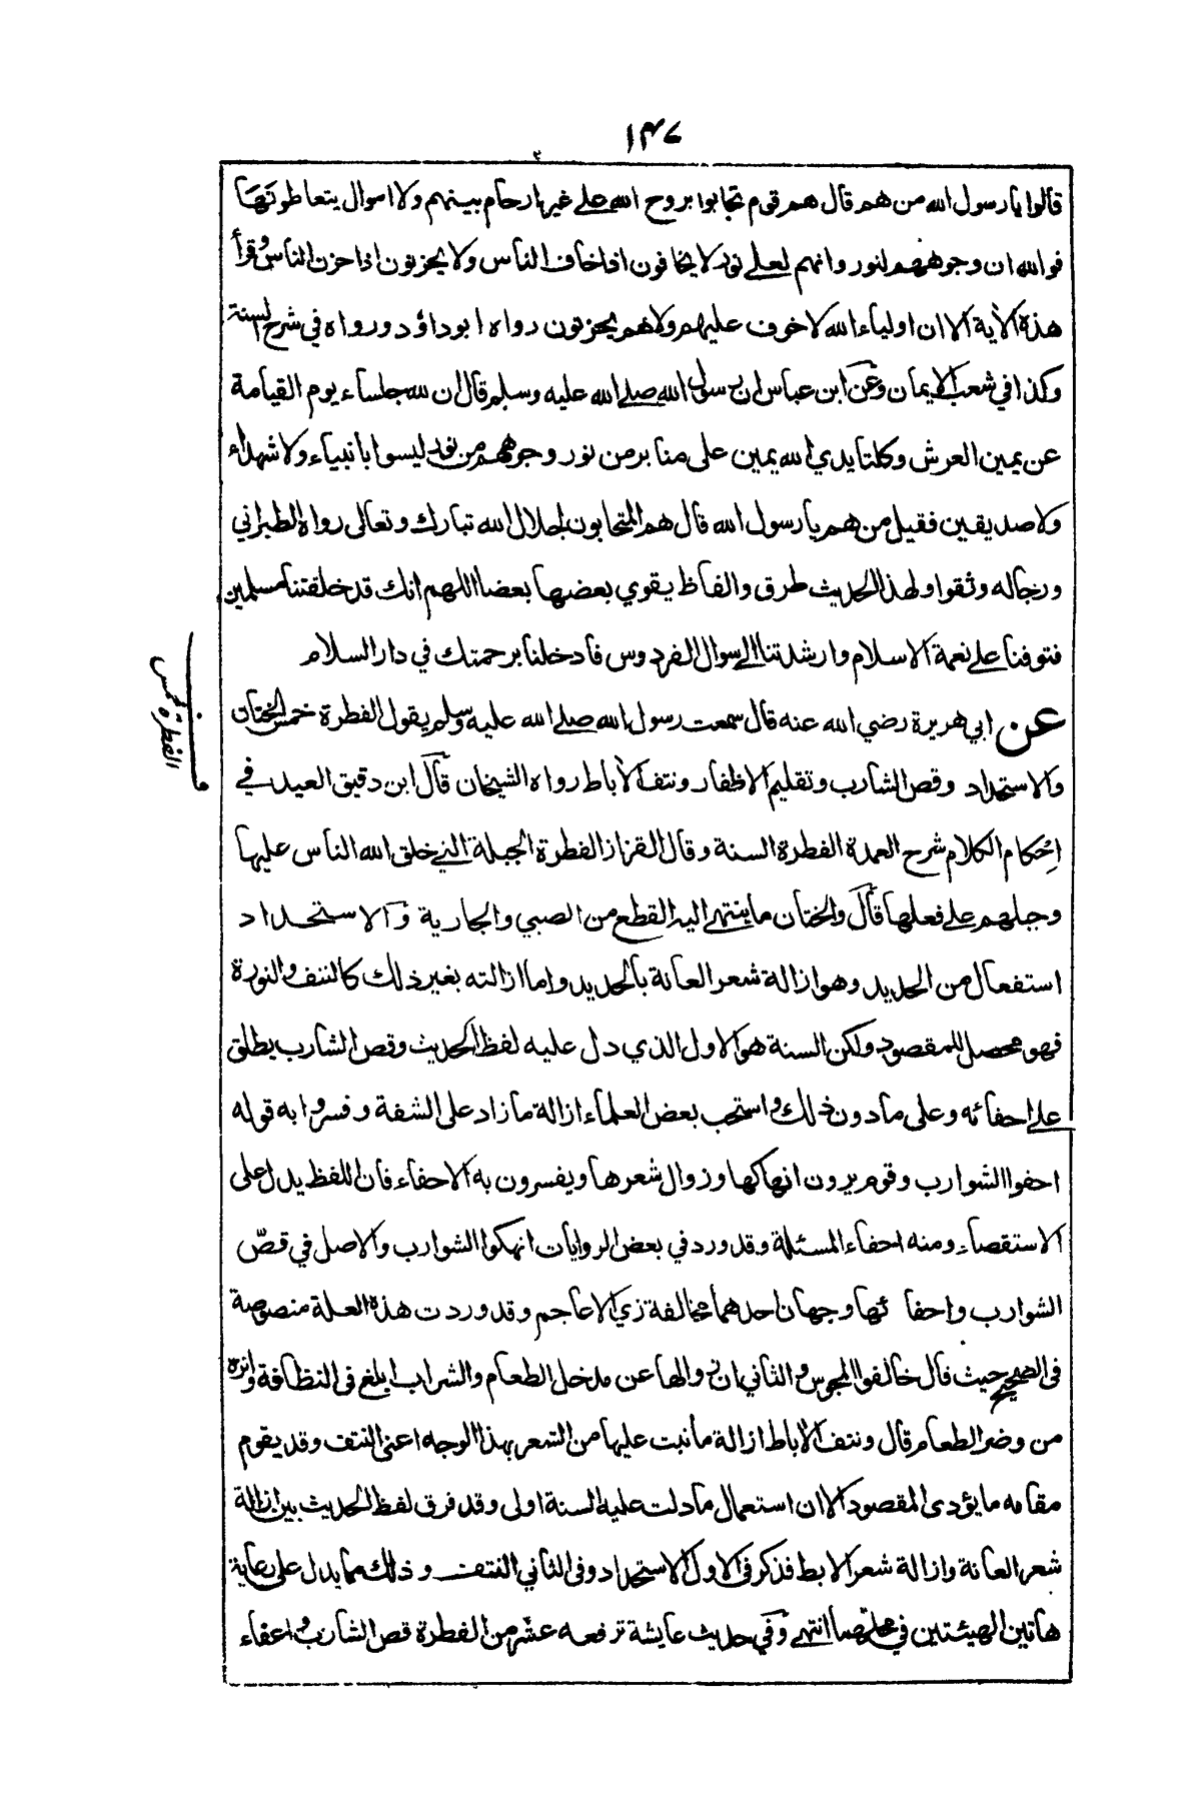 ١٤٧
قالوا يا رسول الله من هم قال هم قوم تحابوا بروح الله على غير ارحام بينهم ولا اموال يتعاطونها
فوالله ان وجوههم لنور وانهم لعلى نور لا يخافون اذا خاف الناس ولا يحزنون اذا حزن الناس وقرأ
هذه الآية الا ان اولياء الله لا خوف عليهم ولا هم يحزنون رواه ابو داؤد ورواه في شرح السنة
وكذا في شعب الايمان وعن ابن عباس ان رسول الله صلى الله عليه وسلم قال ان لله جلساء يوم القيامة
عن يمين العرش وكلتا يدي الله يمين على منابر من نور وجوههم من نور ليسوا بانبياء ولا شهداء
ولا صديقين فقيل من هم يا رسول الله قال هم المتحابون لجلال الله تبارك وتعالى رواه الطبراني
ورجاله وثقوا ولهذا الحديث طرق والفاظ يقوي بعضها بعضا اللهم انك قد خلقتنا مسلمين
فتوفنا على نعمة الاسلام وارشدتنا الى سوال الفردوس فادخلنا برحمتك في دار السلام
الفطرة خمس
عن ابي هريرة رضي الله عنه قال سمعت رسول الله صلى الله عليه وسلم يقول الفطرة خمس الختان
والاستحداد وقص الشارب وتقليم الاظفار ونتف الأباط رواه الشيخان قال ابن دقيق العيد في
احكام الكلام شرح العمدة الفطرة السنة وقال القزاز الفطرة الجبلة التي خلق الله الناس عليها
وجبلهم على فعلها قال والختان ما ينتهي اليه القطع من الصبي والجارية والاستحداد
استفعال من الحديد وهو ازالة شعر العانة بالحديد واما ازالته بغير ذلك كالنتف والنورة
فهو محصل للمقصود ولكن السنة هو الاول الذي دل عليه لفظ الحديث وقص الشارب يطلق
على احفائه وعلى ما دون ذلك واستحب بعض العلماء ازالة ما زاد على الشفة وفسروا به قوله
احفوا الشوارب وقوم يرون انهاكها وزوال شعرها ويفسرون به الاحفاء فان اللفظ يدل على
الاستقصاء ومنه احفاء المسئلة وقد ورد في بعض الروايات انهكوا الشوارب والاصل في قصّ
الشوارب واحفائها وجهان احدهما مخالفة زي الاعاجم وقد وردت هذه العلة منصوصة
فى الصحيح حيث قال خالفوا المجوس والثاني ان زوالها عن مدخل الطعام والشراب ابلغ فى النظافة وانزه
من وضر الطعام قال ونتف الأباط ازالة ما نبت عليها من الشعر بهذا الوجه اعنى النتف وقد يقوم
مقامه ما يؤدى المقصود الا ان استعمال ما دلت عليه السنة اولى وقد فرق لفظ الحديث بين ازالة
شعر العانة وازالة شعر الابط فذكر فى الاول الاستحداد وفى الثاني النتف وذلك مما يدل على رعاية
هاتين الهيئتين في محلهما انتهى وفي حديث عايشة ترفعه عشر من الفطرة قص الشارب واعفاء